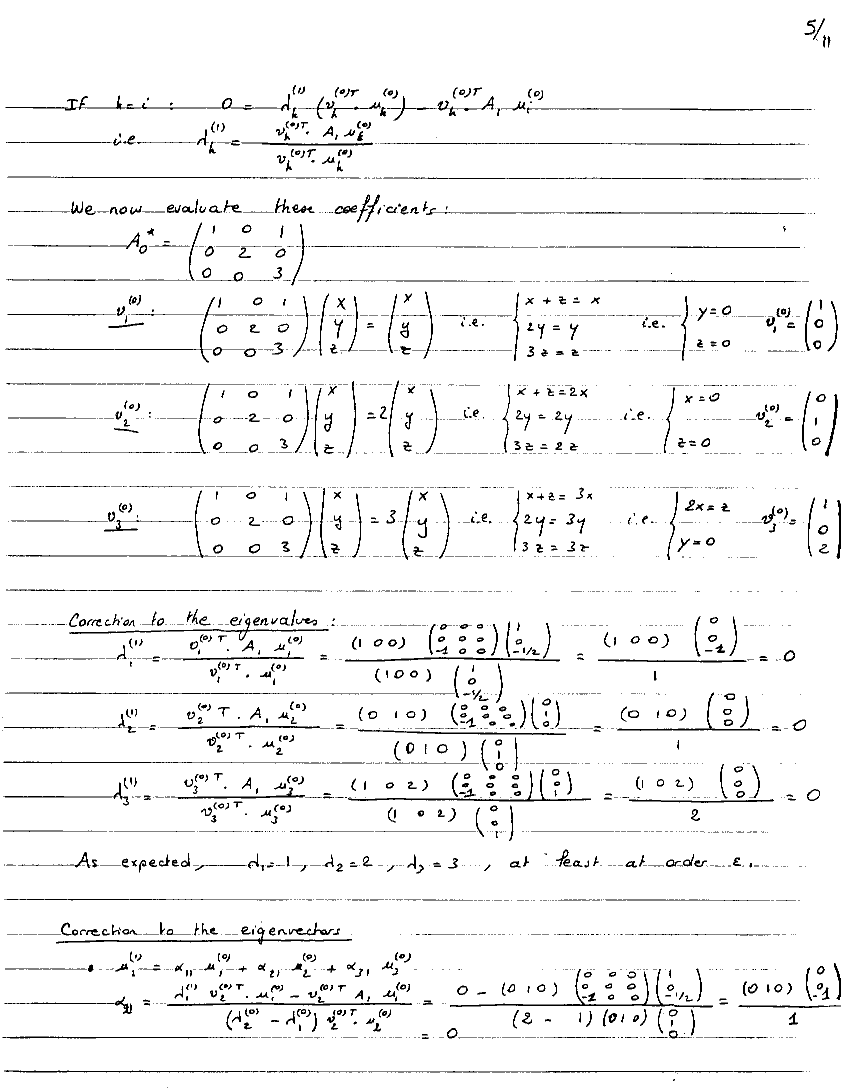 5/11
If k=i : 0 = λ_k^(1) (v_k^(0)T · u_k^(0)) − v_k^(0)T · A₁ u_i^(0)
i.e. λ_k^(1) = (v_k^(0)T · A₁ u_k^(0)) / (v_k^(0)T · u_k^(0))
We now evaluate these coefficients :
A₀* = (1 0 1 ; 0 2 0 ; 0 0 3)
v₁^(0) : (1 0 1 ; 0 2 0 ; 0 0 3) (x ; y ; z) = (x ; y ; z) i.e. { x + z = x ; 2y = y ; 3z = z i.e. { y = 0 ; z = 0 v₁^(0) = (1 ; 0 ; 0)
v₂^(0) : (1 0 1 ; 0 2 0 ; 0 0 3) (x ; y ; z) = 2 (x ; y ; z) i.e. { x + z = 2x ; 2y = 2y ; 3z = 2z i.e. { x = 0 ; z = 0 v₂^(0) = (0 ; 1 ; 0)
v₃^(0) : (1 0 1 ; 0 2 0 ; 0 0 3) (x ; y ; z) = 3 (x ; y ; z) i.e. { x + z = 3x ; 2y = 3y ; 3z = 3z i.e. { 2x = z ; y = 0 v₃^(0) = (1 ; 0 ; 2)
Correction to the eigenvalues :
λ₁^(1) = (v₁^(0)T · A₁ u₁^(0)) / (v₁^(0)T · u₁^(0)) = (1 0 0) (0 0 0 ; 0 0 0 ; -1 0 0) (1 ; 0 ; -1/2) / (1 0 0) (1 ; 0 ; -1/2) = (1 0 0) (0 ; 0 ; -1) / 1 = 0
λ₂^(1) = (v₂^(0)T · A₁ u₂^(0)) / (v₂^(0)T · u₂^(0)) = (0 1 0) (0 0 0 ; 0 0 0 ; -1 0 0) (0 ; 1 ; 0) / (0 1 0) (0 ; 1 ; 0) = (0 1 0) (0 ; 0 ; 0) / 1 = 0
λ₃^(1) = (v₃^(0)T · A₁ u₃^(0)) / (v₃^(0)T · u₃^(0)) = (1 0 2) (0 0 0 ; 0 0 0 ; -1 0 0) (0 ; 0 ; 1) / (1 0 2) (0 ; 0 ; 1) = (1 0 2) (0 ; 0 ; 0) / 2 = 0
As expected, λ₁=1, λ₂=2, λ₃=3, at least at order ε.
Correction to the eigenvectors
• u₁^(1) = α₁₁ u₁^(0) + α₂₁ u₂^(0) + α₃₁ u₃^(0)
α₂₁ = (λ₁^(1) v₂^(0)T · u₁^(0) − v₂^(0)T A₁ u₁^(0)) / ((λ₂^(0) − λ₁^(0)) v₂^(0)T · u₂^(0)) = 0 − (0 1 0) (0 0 0 ; 0 0 0 ; -1 0 0) (1 ; 0 ; -1/2) / (2 − 1) (0 1 0) (0 ; 1 ; 0) = (0 1 0) (0 ; 0 ; -1) / 1
= 0